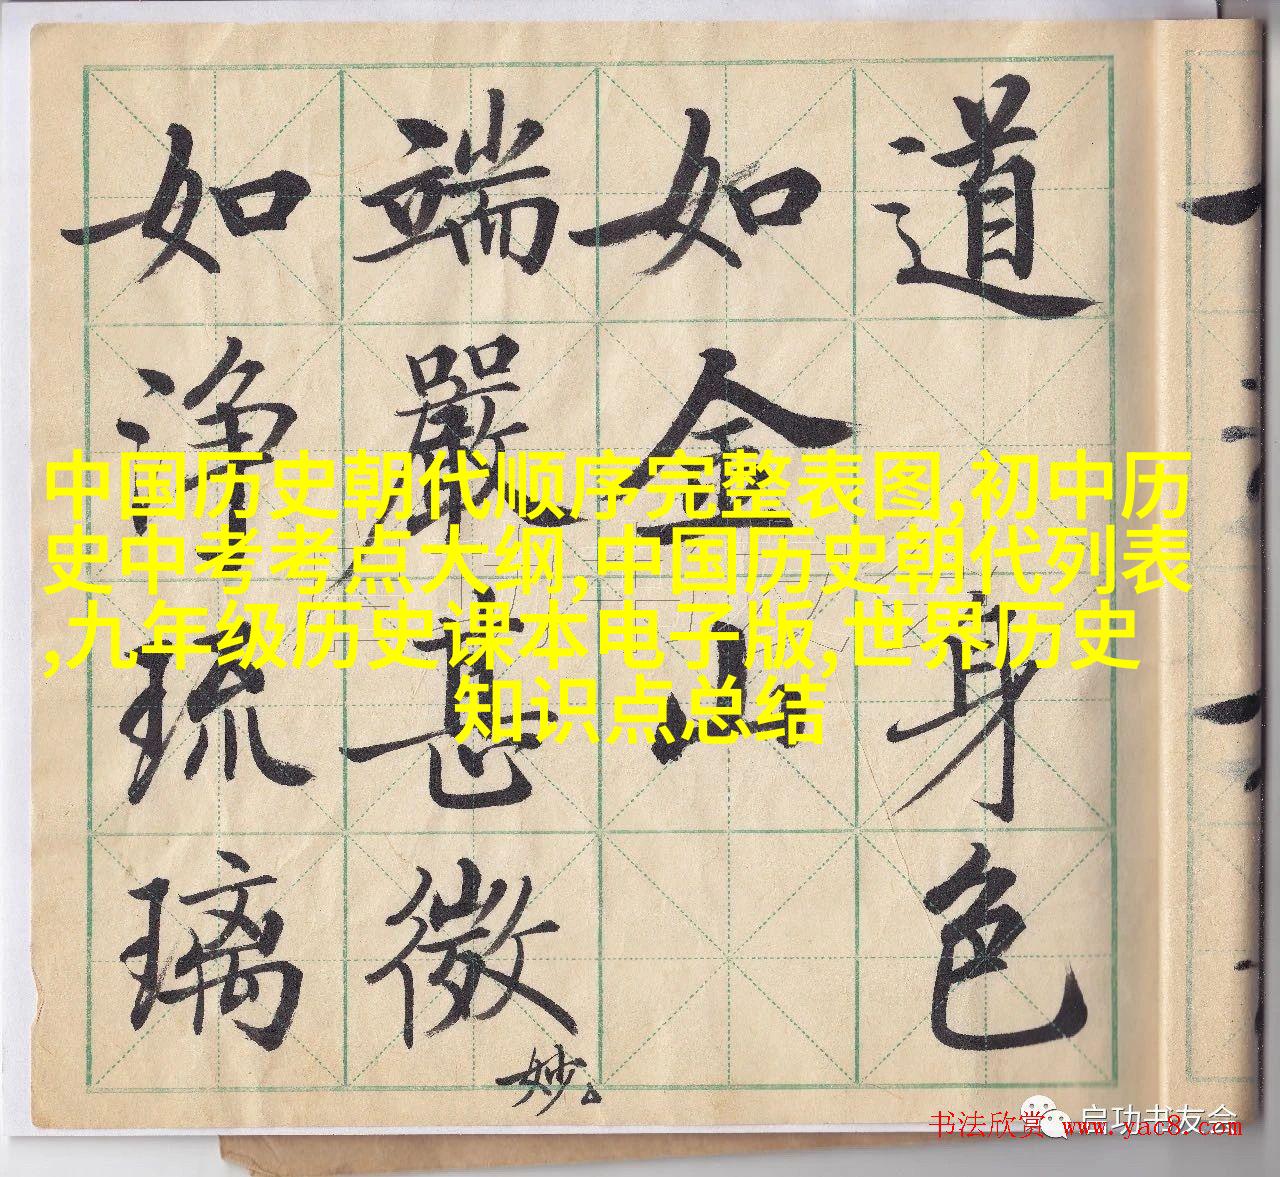 道 身色
如金山
端嚴甚微妙。
如淨琉璃
中国历史朝代顺序完整表图,初中历
史中考考点大纲,中国历史朝代列表
,九年级历史课本电子版,世界历史
知识点总结
启功书友会
书法欣赏 www.yac8.com